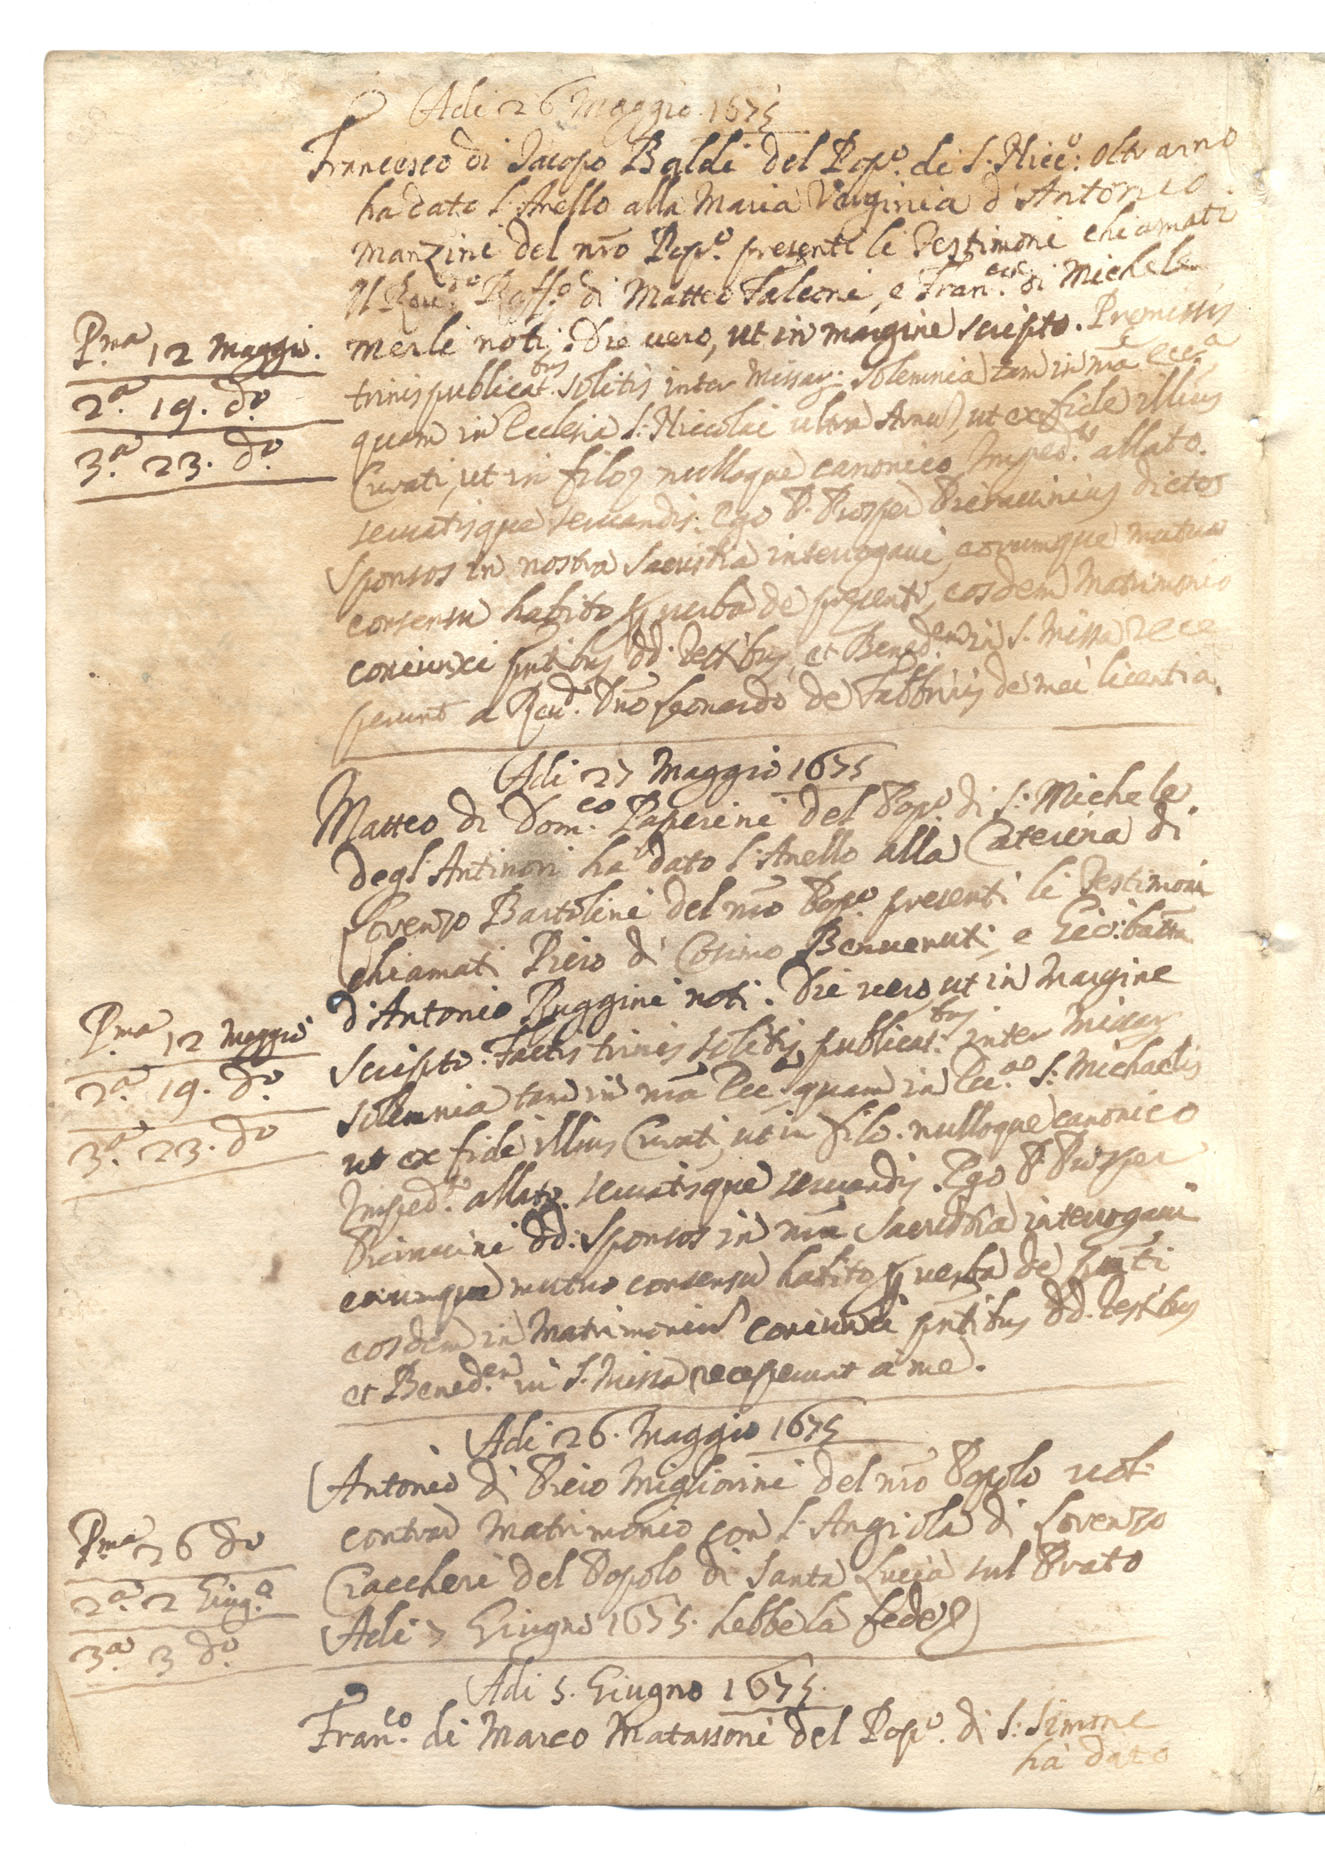 Adi 26 Maggio 1675
Francesco di Jacopo Baldi del Pop.º di S: Nicc.º: oltr'arno
ha dato l'Anello alla Maria Virginia d'Antonio
Manzini del nro Pop.º presenti le Testimoni chiamati
Il Reu.do Raff.º di Matteo Falconi, e Fran.co di Michele
Merli noti. Die uero, ut in margine scripto. Premissis
Pma 12 Maggio.
trinis publicat.bus solitis inter Missar: solemnia tam in nra Ecc.a
2.a 19. do
quam in Ecclesia S: Niccolai ultra Arnu, ut ex fide illius
3.a 23. do
Curati, ut in filo, nulloque canonico Imped.to allato.
seruatisque seruandis. Ego P. Prosper Pieraccinius dictos
sponsos in nostra Sacristia interrogaui, eorumque mutuo
consensu habito p uerba de presenti, eosdem Matrimonio
coniunxi pntibus dd. Testibus, et Bened.em in S. Missa rece
perunt a Reu.do Dno Leonardo de Fabbriis de mei licentia.
Adi 27 Maggio 1675
Matteo di Dom.co Paperini del Pop.º di S: Michele
degl'Antinori ha dato l'Anello alla Caterina di
Lorenzo Bartolini del nro Pop.º presenti li Testimoni
chiamati Piero di Cosimo Benuenuti, e Gio: batta
d'Antonio Ruggini noti. Die uero ut in Margine
Pma 12 Maggio
scripto. Factis trinis solitis publicat.bus inter Missar
2.a 19. do
solemnia tam in nra Ecc.a quam in Ecc.a S: Michaelis
3.a 23. do
ut ex fide illius Curati, ut in filo. nulloque canonico
Imped.to allato. seruatisque seruandis. Ego P. Prosper
Pieraccini dd: Sponsos in nra Sacristia interrogaui
eorumque mutuo consensu habito p uerba de pnti
eosdem in Matrimoniu coniunxi pntibus dd. Testibus
et Bened.em in S. Missa receperunt a me.
Adi 26. Maggio 1675
Antonio di Piero Migliorini del nro Popolo uol
contrar Matrimonio con l'Angiola di Lorenzo
Pma 26 do
Craccheri del Popolo di Santa Lucia sul Prato
2.a 2 Giug.º
Adi 7 Giugno 1675. hebbe la fede
3.a 3 do
Adi 5. Giugno 1675.
Fran.co di Marco Matassoni del Pop.º di S: Simone
ha dato